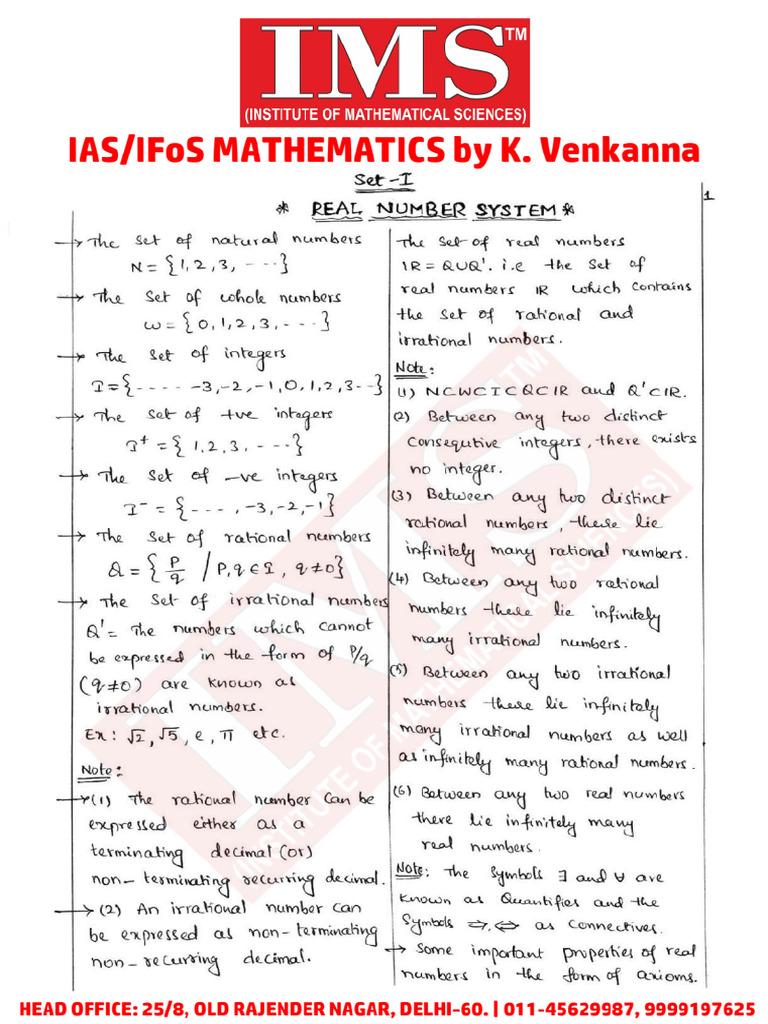 IMS™
(INSTITUTE OF MATHEMATICAL SCIENCES)
IAS/IFoS MATHEMATICS by K. Venkanna
Set-I
1
* REAL NUMBER SYSTEM *
→ The set of natural numbers
N = {1, 2, 3, ----}
→ The set of whole numbers
W = {0, 1, 2, 3, ----}
→ The set of integers
I = {---- -3, -2, -1, 0, 1, 2, 3--}
→ The set of +ve integers
I⁺ = {1, 2, 3, ----}
→ The set of -ve integers
I⁻ = {----, -3, -2, -1}
→ The set of rational numbers
Q = {P/q / P, q ∈ I, q ≠ 0}
→ The set of irrational numbers
Q' = The numbers which cannot
be expressed in the form of P/q
(q ≠ 0) are known as
irrational numbers.
Ex: √2, √5, e, π etc.
Note:
→ (1) The rational number can be
expressed either as a
terminating decimal (or)
non-terminating recurring decimal.
→ (2) An irrational number can
be expressed as non-terminating
non-recurring decimal.
The set of real numbers
IR = Q∪Q'. i.e the set of
real numbers IR which contains
the set of rational and
irrational numbers.
Note:
(1) N⊂W⊂I⊂Q⊂IR and Q'⊂IR.
(2) Between any two distinct
consequtive integers, there exists
no integer.
(3) Between any two distinct
rational numbers, there lie
infinitely many rational numbers.
(4) Between any two rational
numbers there lie infinitely
many irrational numbers.
(5) Between any two irrational
numbers there lie infinitely
many irrational numbers as well
as infinitely many rational numbers.
(6) Between any two real numbers
there lie infinitely many
real numbers.
Note: The symbols ∃ and ∀ are
known as Quantifies and the
symbols ⇒, ⇔ as connectives.
→ some important properties of real
numbers in the form of axioms.
IMS™
(INSTITUTE OF MATHEMATICAL SCIENCES)
HEAD OFFICE: 25/8, OLD RAJENDER NAGAR, DELHI-60. | 011-45629987, 9999197625